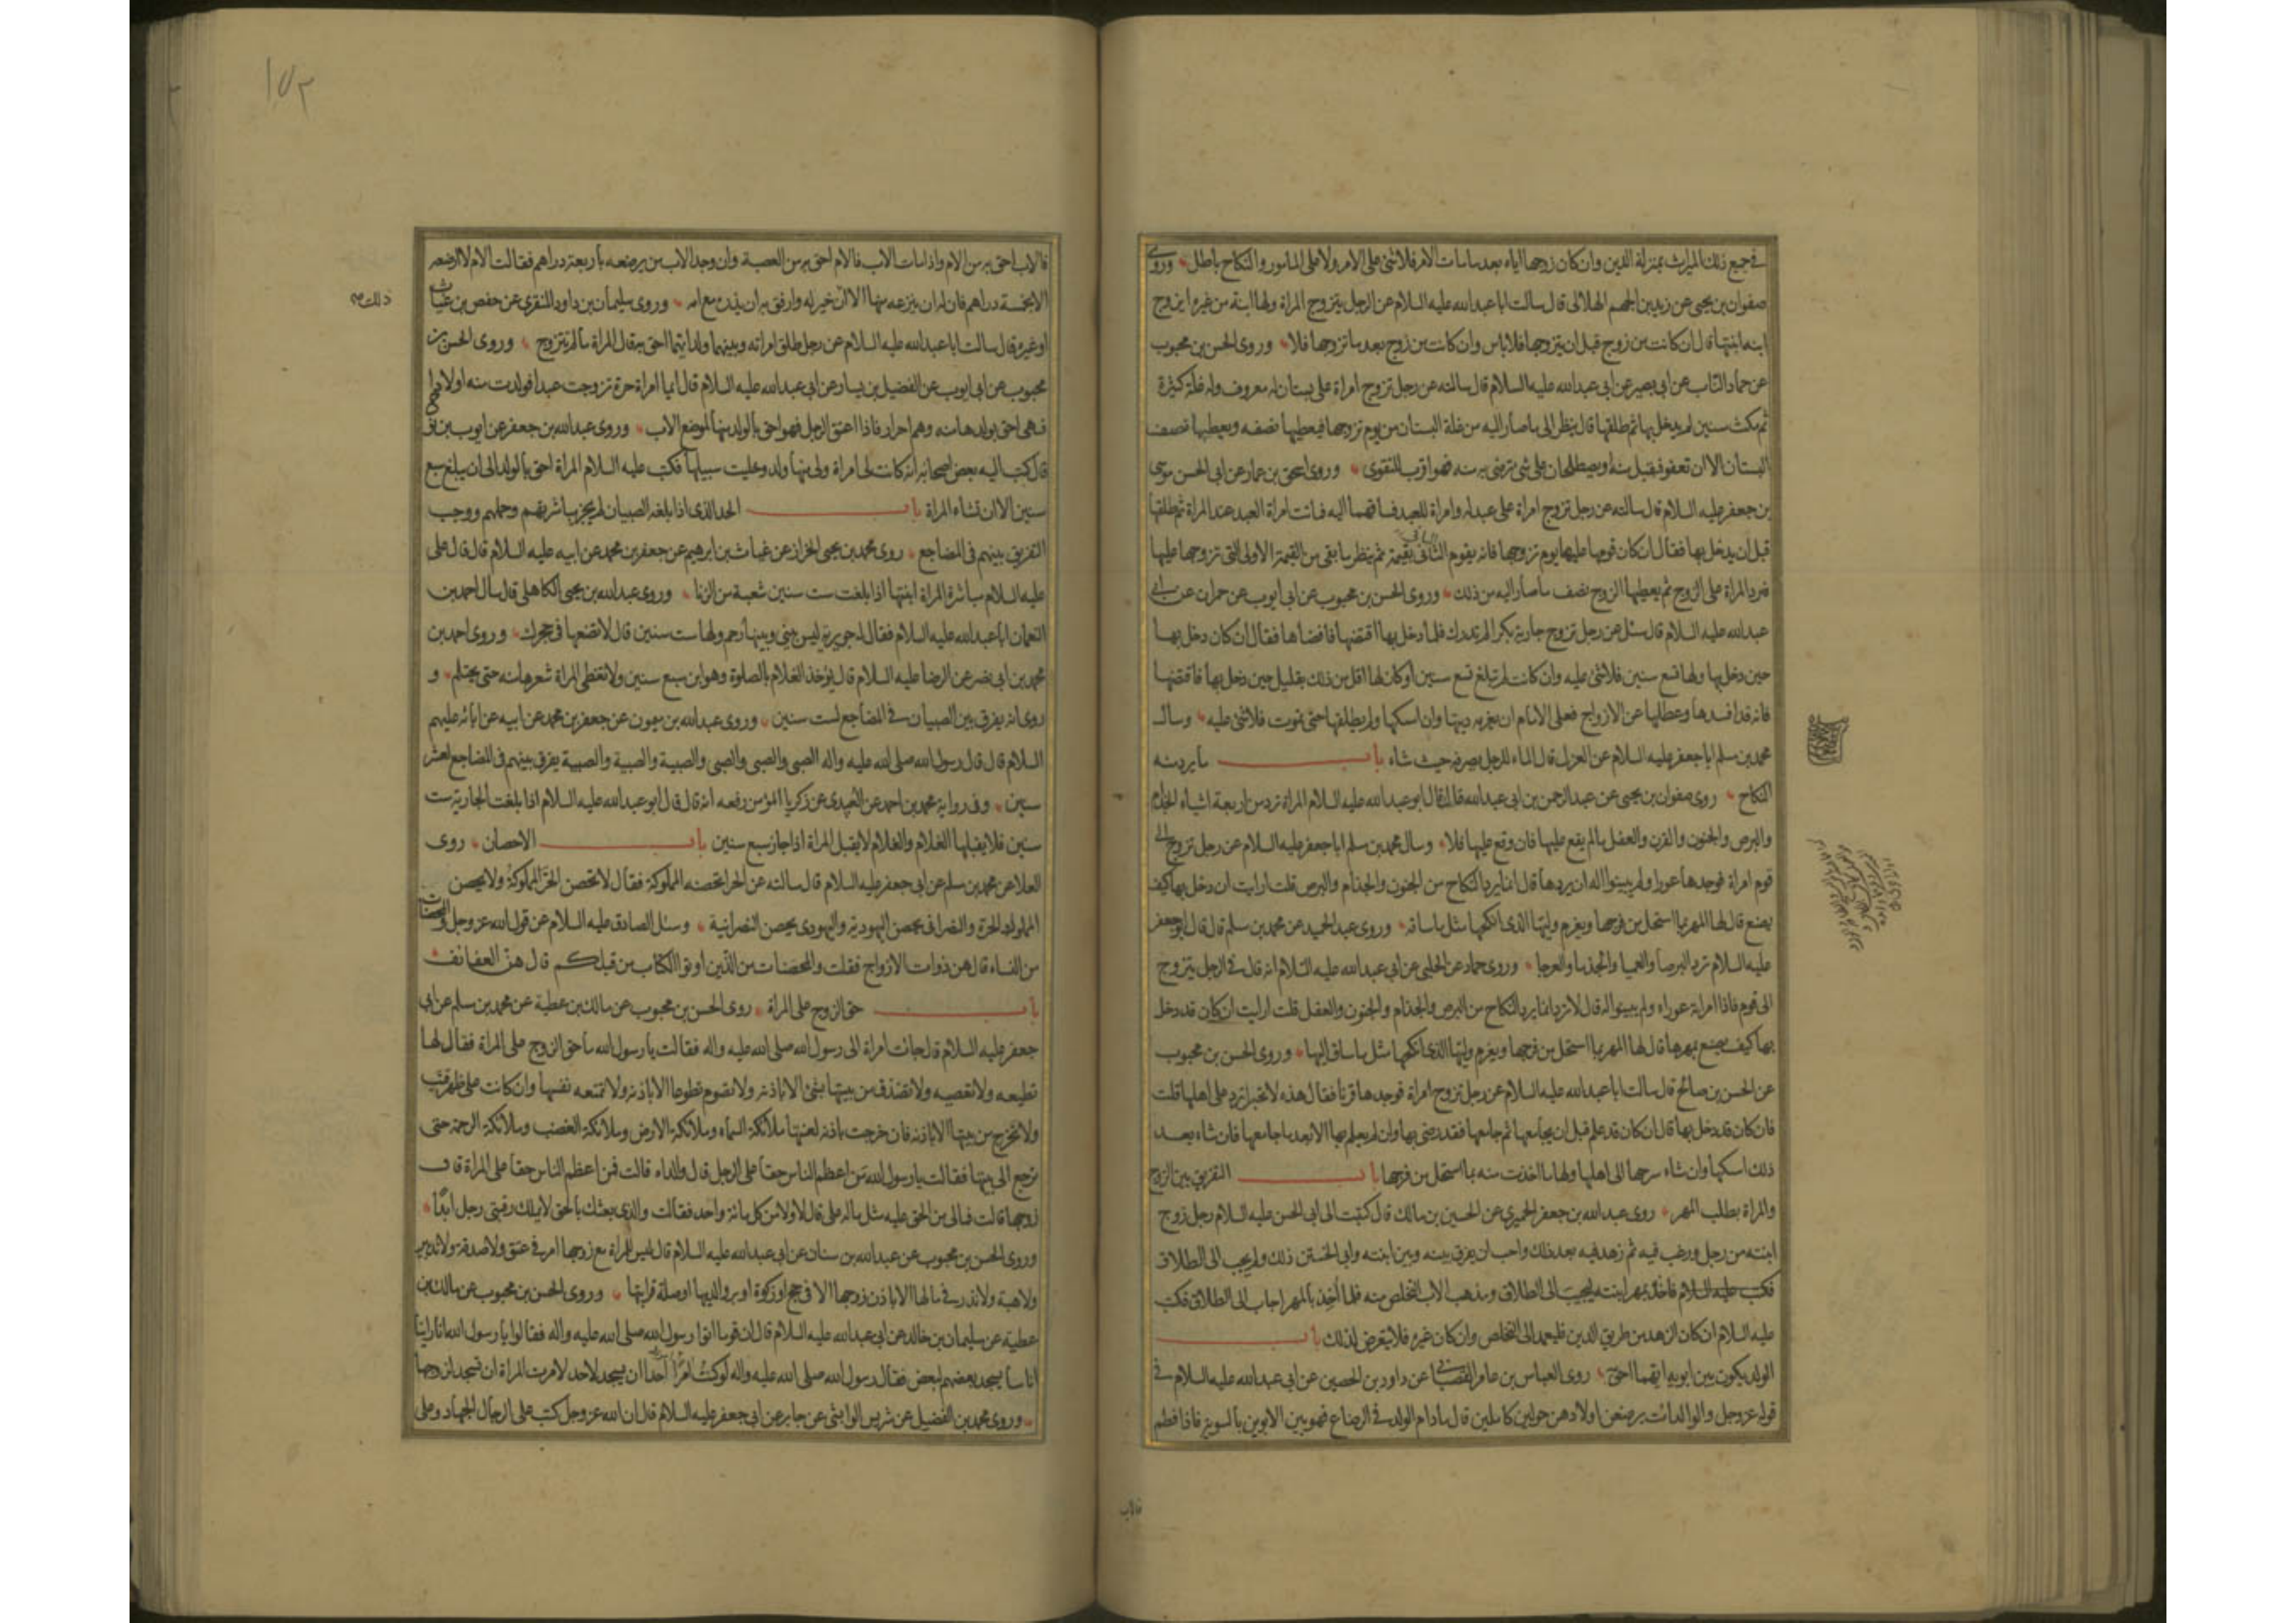 في جميع ذلك الميراث بمنزلة الدين وان كان زوجها اياه بعد ما مات الامر فلا شئ على الامر ولا على المامور والنكاح باطل وروى
صفوان بن يحيى عن زيد بن الجهم الهلالى قال سالت ابا عبدالله عليه السلام عن الرجل يتزوج المراة ولها ابنة من غيره ايزوج
ابنه ابنتها قال ان كانت من زوج قبل ان يتزوجها فلا باس وان كانت من زوج بعد ما تزوجها فلا وروى الحسن بن محبوب
عن حماد الناب عن ابى بصير عن ابى عبدالله عليه السلام قال سالته عن رجل تزوج امراة على بستان له معروف وله غلة كثيرة
ثم مكث سنين لم يدخل بها ثم طلقها قال ينظر الى ما صار اليه من غلة البستان من يوم تزوجها فيعطيها نصفه ويعطيها نصف
البستان الا ان تعفو فتقبل منه او يصطلحان على شئ ترضى به منه فهو اقرب للتقوى وروى اسحق بن عمار عن ابى الحسن موسى
بن جعفر عليه السلام قال سالته عن رجل تزوج امراة على عبد له وامراة للعبد فساقهما اليه فماتت امراة العبد عند المراة ثم طلقها
قبل ان يدخل بها فقال ان كان قومها عليها يوم تزوجها فانه يقوم الثانى بقيمة ثم ينظر ما بقى من القيمة الاولى التى تزوجها عليها
فترد المراة على الزوج ثم يعطيها الزوج نصف ما صار اليه من ذلك وروى الحسن بن محبوب عن ابى ايوب عن حمران عن ابى
عبدالله عليه السلام قال سئل عن رجل تزوج جارية بكرا لم تدرك فلما دخل بها اقتضها فافضاها فقال ان كان دخل بها
حين دخل بها ولها تسع سنين فلا شئ عليه وان كانت لم تبلغ تسع سنين او كان لها اقل من ذلك بقليل حين دخل بها فاقتضها
فانه قد افسدها وعطلها عن الازواج فعلى الامام ان يغرمه ديتها وان امسكها ولم يطلقها حتى تموت فلا شئ عليه وسال
محمد بن مسلم ابا جعفر عليه السلام عن العزل قال الماء للرجل يصرفه حيث شاء باب ما يرد منه
النكاح روى صفوان بن يحيى عن عبد الرحمن بن ابى عبدالله قال قال ابو عبدالله عليه السلام المراة ترد من اربعة اشياء الجذام
والبرص والجنون والقرن والعفل ما لم يقع عليها فان وقع عليها فلا وسال محمد بن مسلم ابا جعفر عليه السلام عن رجل تزوج الى
قوم امراة فوجدها عورا ولم يبينوا له ان يردها قال انما يرد النكاح من الجنون والجذام والبرص قلت ارايت ان دخل بها كيف
يصنع قال لها المهر بما استحل من فرجها ويغرم وليها الذى انكحها مثل ما ساقه وروى عبد الحميد عن محمد بن مسلم قال قال ابو جعفر
عليه السلام ترد البرصا والعميا والجذما والعرجا وروى حماد عن الحلبى عن ابى عبدالله عليه السلام انه قال فى الرجل يتزوج
الى قوم فاذا امراته عوراء ولم يبينوا له قال لا ترد انما يرد النكاح من البرص والجذام والجنون والعفل قلت ارايت ان كان قد دخل
بها كيف يصنع بمهرها قال لها المهر بما استحل من فرجها ويغرم وليها الذى انكحها مثل ما ساق اليها وروى الحسن بن محبوب
عن الحسن بن صالح قال سالت ابا عبدالله عليه السلام عن رجل تزوج امراة فوجدها قرنا فقال هذه لا تحبل ترد على اهلها قلت
فان كان قد دخل بها قال ان كان قد علم قبل ان يجامعها ثم جامعها فقد رضى بها وان لم يعلم بها الا بعد ما جامعها فان شاء بعد
ذلك امسكها وان شاء سرحها الى اهلها ولها ما اخذت منه بما استحل من فرجها باب التفريق بين الزوج
والمراة بطلب المهر روى عبدالله بن جعفر الحميرى عن الحسين بن مالك قال كتبت الى ابى الحسن عليه السلام رجل زوج
ابنته من رجل ورغب فيه ثم زهد فيه بعد ذلك واحب ان يفرق بينه وبين ابنته وابى الختن ذلك ولم يجب الى الطلاق
فكتب عليه السلام فاخذه بمهر ابنته ليجيب الى الطلاق ومذهب الاب التخلص منه فلما اخذ بالمهر اجاب الى الطلاق فكتب
عليه السلام ان كان الزهد من طريق الدين فليعمد الى التخلص وان كان غيره فلا يتعرض لذلك باب
الولد يكون بين ابويه ايهما احق روى العباس بن عامر القصبانى عن داود بن الحصين عن ابى عبدالله عليه السلام فى
قوله عز وجل والوالدات يرضعن اولادهن حولين كاملين قال ما دام الولد فى الرضاع فهو بين الابوين بالسوية فاذا فطم
فالاب
١٥٢
فالاب احق به من الام واذا مات الاب فالام احق به من العصبة وان وجد الاب من يرضعه باربعة دراهم فقالت الام لا ارضعه
الا بخمسة دراهم فان له ان ينزعه منها الا ان خير له وارفق به ان يذره مع امه وروى سليمان بن داود المنقرى عن حفص بن غياث
ذلك
او غيره قال سالت ابا عبدالله عليه السلام عن رجل طلق امراته وبينهما ولد ايهما احق به قال المراة ما لم تتزوج وروى الحسن بن
محبوب عن ابى ايوب عن الفضيل بن يسار عن ابى عبدالله عليه السلام قال ايما امراة حرة تزوجت عبدا فولدت منه اولادا
فهى احق بولدها منه وهم احرار فاذا اعتق الرجل فهو احق بالولد منها لموضع الاب وروى عبدالله بن جعفر عن ايوب بن نوح
قال كتب اليه بعض اصحابه انه كانت لى امراة ولى منها ولد وخليت سبيلها فكتب عليه السلام المراة احق بالولد الى ان يبلغ سبع
سنين الا ان تشاء المراة باب الحد الذى اذا بلغه الصبيان لم يجز مباشرتهم وحملهم ووجب
التفريق بينهم فى المضاجع روى محمد بن يحيى الخزاز عن غياث بن ابرهيم عن جعفر بن محمد عن ابيه عليه السلام قال قال على
عليه السلام مباشرة المراة ابنتها اذا بلغت ست سنين شعبة من الزنا وروى عبدالله بن يحيى الكاهلى قال سال احمد بن
النعمان ابا عبدالله عليه السلام فقال له جويرية ليس بينى وبينها رحم ولها ست سنين قال لا تضعها فى حجرك وروى احمد بن
محمد بن ابى نصر عن الرضا عليه السلام قال يؤخذ الغلام بالصلوة وهو ابن سبع سنين ولا تغطى المراة شعرها منه حتى يحتلم و
روى انه يفرق بين الصبيان فى المضاجع لست سنين وروى عبدالله بن ميمون عن جعفر بن محمد عن ابيه عن ابائه عليهم
السلام قال قال رسول الله صلى الله عليه واله الصبى والصبى والصبى والصبية والصبية والصبية يفرق بينهم فى المضاجع لعشر
سنين وفى رواية محمد بن احمد عن العبيدى عن زكريا المؤمن رفعه انه قال قال ابو عبدالله عليه السلام اذا بلغت الجارية ست
سنين فلا يقبلها الغلام والغلام لا يقبل المراة اذا جاز سبع سنين باب الاحصان روى
العلا عن محمد بن مسلم عن ابى جعفر عليه السلام قال سالته عن الحر اتحصنه المملوكة فقال لا تحصن الحر المملوكة ولا يحصن
المملوك الحرة والنصرانى يحصن اليهودية واليهودى يحصن النصرانية وسئل الصادق عليه السلام عن قول الله عز وجل والمحصنات
من النساء قال هن ذوات الازواج فقلت والمحصنات من الذين اوتوا الكتاب من قبلكم قال هن العفائف
باب حق الزوج على المراة روى الحسن بن محبوب عن مالك بن عطية عن محمد بن مسلم عن ابى
جعفر عليه السلام قال جائت امراة الى رسول الله صلى الله عليه واله فقالت يا رسول الله ما حق الزوج على المراة فقال لها
تطيعه ولا تعصيه ولا تصدق من بيتها بشئ الا باذنه ولا تصوم تطوعا الا باذنه ولا تمنعه نفسها وان كانت على ظهر قتب
ولا تخرج من بيتها الا باذنه فان خرجت بغير اذنه لعنتها ملائكة السماء وملائكة الارض وملائكة الغضب وملائكة الرحمة حتى
ترجع الى بيتها فقالت يا رسول الله من اعظم الناس حقا على الرجل قال والداه قالت فمن اعظم الناس حقا على المراة قال
زوجها قالت فمالى من الحق عليه مثل ما له على قال لا ولا من كل مائة واحد فقالت والذى بعثك بالحق لا يملك رقبتى رجل ابدا
وروى الحسن بن محبوب عن عبدالله بن سنان عن ابى عبدالله عليه السلام قال ليس للمراة مع زوجها امر فى عتق ولا صدقة ولا تدبير
ولا هبة ولا نذر فى مالها الا باذن زوجها الا فى حج او زكوة او بر والديها او صلة قرابتها وروى الحسن بن محبوب عن مالك بن
عطية عن سليمان بن خالد عن ابى عبدالله عليه السلام قال ان قوما اتوا رسول الله صلى الله عليه واله فقالوا يا رسول الله انا راينا
اناسا يسجد بعضهم لبعض فقال رسول الله صلى الله عليه واله لو كنت امرا احدا ان يسجد لاحد لامرت المراة ان تسجد لزوجها
وروى محمد بن الفضيل عن شريس الوابشى عن جابر عن ابى جعفر عليه السلام قال ان الله عز وجل كتب على الرجال الجهاد وعلى